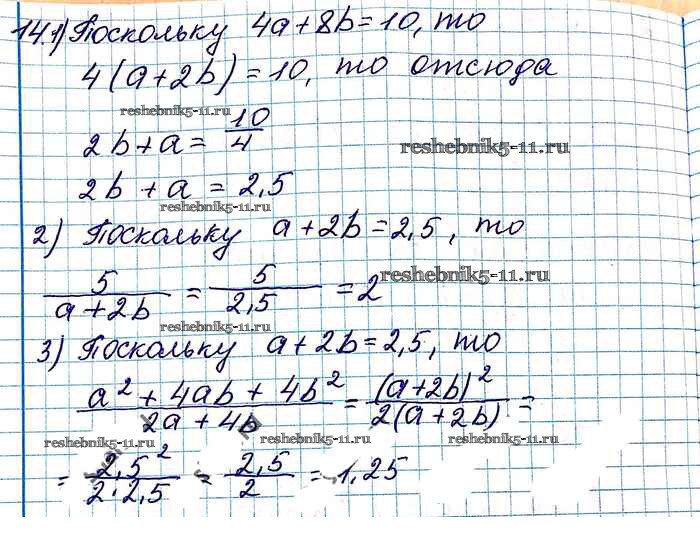 14.1) Поскольку 4a + 8b = 10, то
4(a + 2b) = 10, то отсюда
reshebnik5-11.ru
2b + a = 10/4
reshebnik5-11.ru
2b + a = 2,5
reshebnik5-11.ru
2) Поскольку a + 2b = 2,5, то
5/(a + 2b) = 5/2,5 = 2
reshebnik5-11.ru
reshebnik5-11.ru
3) Поскольку a + 2b = 2,5, то
(a² + 4ab + 4b²)/(2a + 4b) = (a + 2b)²/(2(a + 2b)) =
reshebnik5-11.ru reshebnik5-11.ru reshebnik5-11.ru
= 2,5²/(2·2,5) = 2,5/2 = 1,25